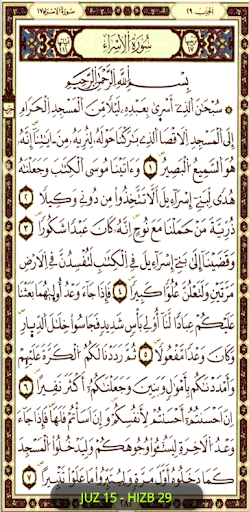 الجزء ٢٩ سورة الإسراء ١٧
سُورَةُ الإِسْرَاءِ
بِسْمِ اللَّهِ الرَّحْمَٰنِ الرَّحِيمِ
سُبْحَٰنَ الَّذِىٓ أَسْرَىٰ بِعَبْدِهِۦ لَيْلًا مِّنَ الْمَسْجِدِ الْحَرَامِ
إِلَى الْمَسْجِدِ الْأَقْصَا الَّذِى بَٰرَكْنَا حَوْلَهُۥ لِنُرِيَهُۥ مِنْ ءَايَٰتِنَآ إِنَّهُۥ
هُوَ السَّمِيعُ الْبَصِيرُ ١ وَءَاتَيْنَا مُوسَى الْكِتَٰبَ وَجَعَلْنَٰهُ
هُدًى لِّبَنِىٓ إِسْرَٰٓءِيلَ أَلَّا تَتَّخِذُوا۟ مِن دُونِى وَكِيلًا ٢
ذُرِّيَّةَ مَنْ حَمَلْنَا مَعَ نُوحٍ إِنَّهُۥ كَانَ عَبْدًا شَكُورًا ٣
وَقَضَيْنَآ إِلَىٰ بَنِىٓ إِسْرَٰٓءِيلَ فِى الْكِتَٰبِ لَتُفْسِدُنَّ فِى الْأَرْضِ
مَرَّتَيْنِ وَلَتَعْلُنَّ عُلُوًّا كَبِيرًا ٤ فَإِذَا جَآءَ وَعْدُ أُولَىٰهُمَا بَعَثْنَا
عَلَيْكُمْ عِبَادًا لَّنَآ أُو۟لِى بَأْسٍ شَدِيدٍ فَجَاسُوا۟ خِلَٰلَ الدِّيَارِ
وَكَانَ وَعْدًا مَّفْعُولًا ٥ ثُمَّ رَدَدْنَا لَكُمُ الْكَرَّةَ عَلَيْهِمْ
وَأَمْدَدْنَٰكُم بِأَمْوَٰلٍ وَبَنِينَ وَجَعَلْنَٰكُمْ أَكْثَرَ نَفِيرًا ٦
إِنْ أَحْسَنتُمْ أَحْسَنتُمْ لِأَنفُسِكُمْ وَإِنْ أَسَأْتُمْ فَلَهَا فَإِذَا جَآءَ
وَعْدُ الْءَاخِرَةِ لِيَسُۥٓـُٔوا۟ وُجُوهَكُمْ وَلِيَدْخُلُوا۟ الْمَسْجِدَ
كَمَا دَخَلُوهُ أَوَّلَ مَرَّةٍ وَلِيُتَبِّرُوا۟ مَا عَلَوْا۟ تَتْبِيرًا ٧
JUZ 15 - HIZB 29